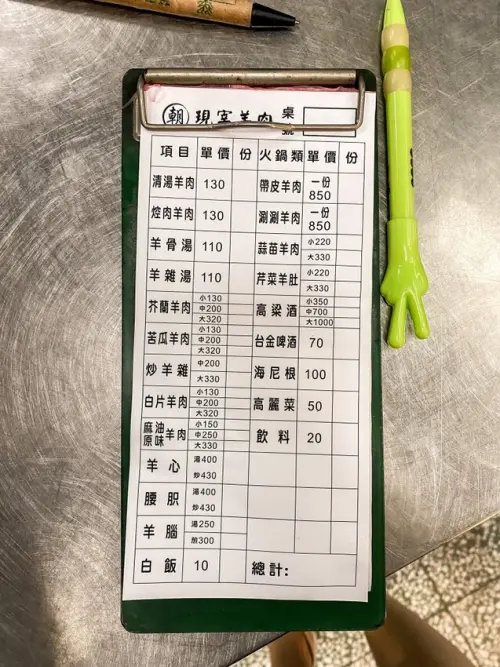 朝 現宰羊肉 桌號
項目 單價 份 火鍋類 單價 份
清湯羊肉 130 帶皮羊肉 一份 850
焢肉羊肉 130 涮涮羊肉 一份 850
羊骨湯 110 蒜苗羊肉 小220 大330
羊雜湯 110 芹菜羊肚 小220 大330
芥蘭羊肉 小130 中200 大320 高粱酒 小350 中700 大1000
苦瓜羊肉 小130 中200 大320 台金啤酒 70
炒羊雜 中200 大330 海尼根 100
白片羊肉 小130 中200 大320 高麗菜 50
麻油原味羊肉 小150 中250 大330 飲料 20
羊心 湯400 炒430
腰胑 湯400 炒430
羊腦 湯250 煎300
白飯 10 總計: